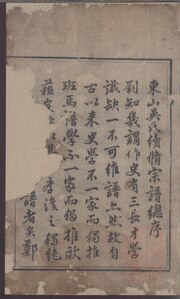 東山吳氏續脩宗譜總序
劉知幾謂作史有三長才學
識缺一不可維譜亦然故自
古以來史學不一家而獨推
班馬譜學不一家而獨推歐
蘇
李後之獨絶
譜者矣鄭